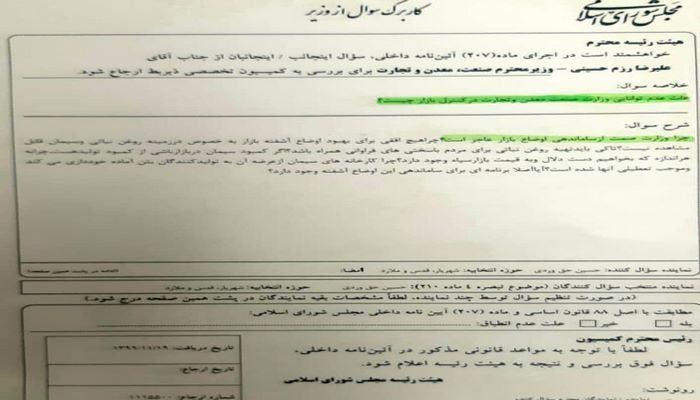 مجلس شورای اسلامی
کاربرگ سوال از وزیر
هیئت رئیسه محترم
خواهشمند است در اجرای ماده (۲۰۷) آئین‌نامه داخلی، سؤال اینجانب / اینجانبان از جناب آقای
علیرضا رزم حسینی – وزیرمحترم صنعت، معدن و تجارت برای بررسی به کمیسیون تخصصی ذیربط ارجاع شود.
خلاصه سوال:
علت عدم توانایی وزارت صنعت معدن وتجارت درکنترل بازار چیست؟
شرح سوال:
چرا وزارت صمت ازساماندهی اوضاع بازار عاجز است؟چراهیچ افقی برای بهبود اوضاع آشفته بازار به خصوص درزمینه روغن نباتی وسیمان قابل
مشاهده نیست؟تاکی بایدتهیه روغن نباتی برای مردم باسختی های فراوانی همراه باشد؟اگر کمبود سیمان دربازارناشی از کمبود تولیدهست.چرابه
هراندازه که بخواهیم دست دلال وبه قیمت بازارسیاه وجود دارد؟چرا کارخانه های سیمان ازعرضه آن به تولیدکنندگان بتن آماده خودداری می کند
وموجب تعطیلی آنها شده است؟آیااصلا برنامه ای برای ساماندهی این اوضاع آشفته وجود دارد؟
نماینده سؤال کننده: حسین حق وردی حوزه انتخابیه: شهریار، قدس و ملارد امضا: (ادامه در پشت همین صفحه)
نماینده منتخب سؤال کنندگان (موضوع تبصره ۴ ماده ۲۱۰): حسین حق وردی حوزه انتخابیه: شهریار، قدس و ملارد
(در صورت تنظیم سؤال توسط چند نماینده، لطفاً مشخصات بقیه نمایندگان در پشت همین صفحه درج شود.)
مطابقت با اصل ۸۸ قانون اساسی و ماده (۲۰۷) آیین نامه داخلی مجلس شورای اسلامی:
بله خیر علت عدم انطباق:
رئیس محترم کمیسیون
لطفاً با توجه به مواعد قانونی مذکور در آئین‌نامه داخلی،
سؤال فوق بررسی و نتیجه به هیئت رئیسه اعلام شود.
هیئت رئیسه مجلس شورای اسلامی
رونوشت:
تاریخ دریافت: ۱۳۹۹/۱۱/۱۹
تاریخ ارجاع:
شماره ارجاع: ۱۱۱۵۵۰۰